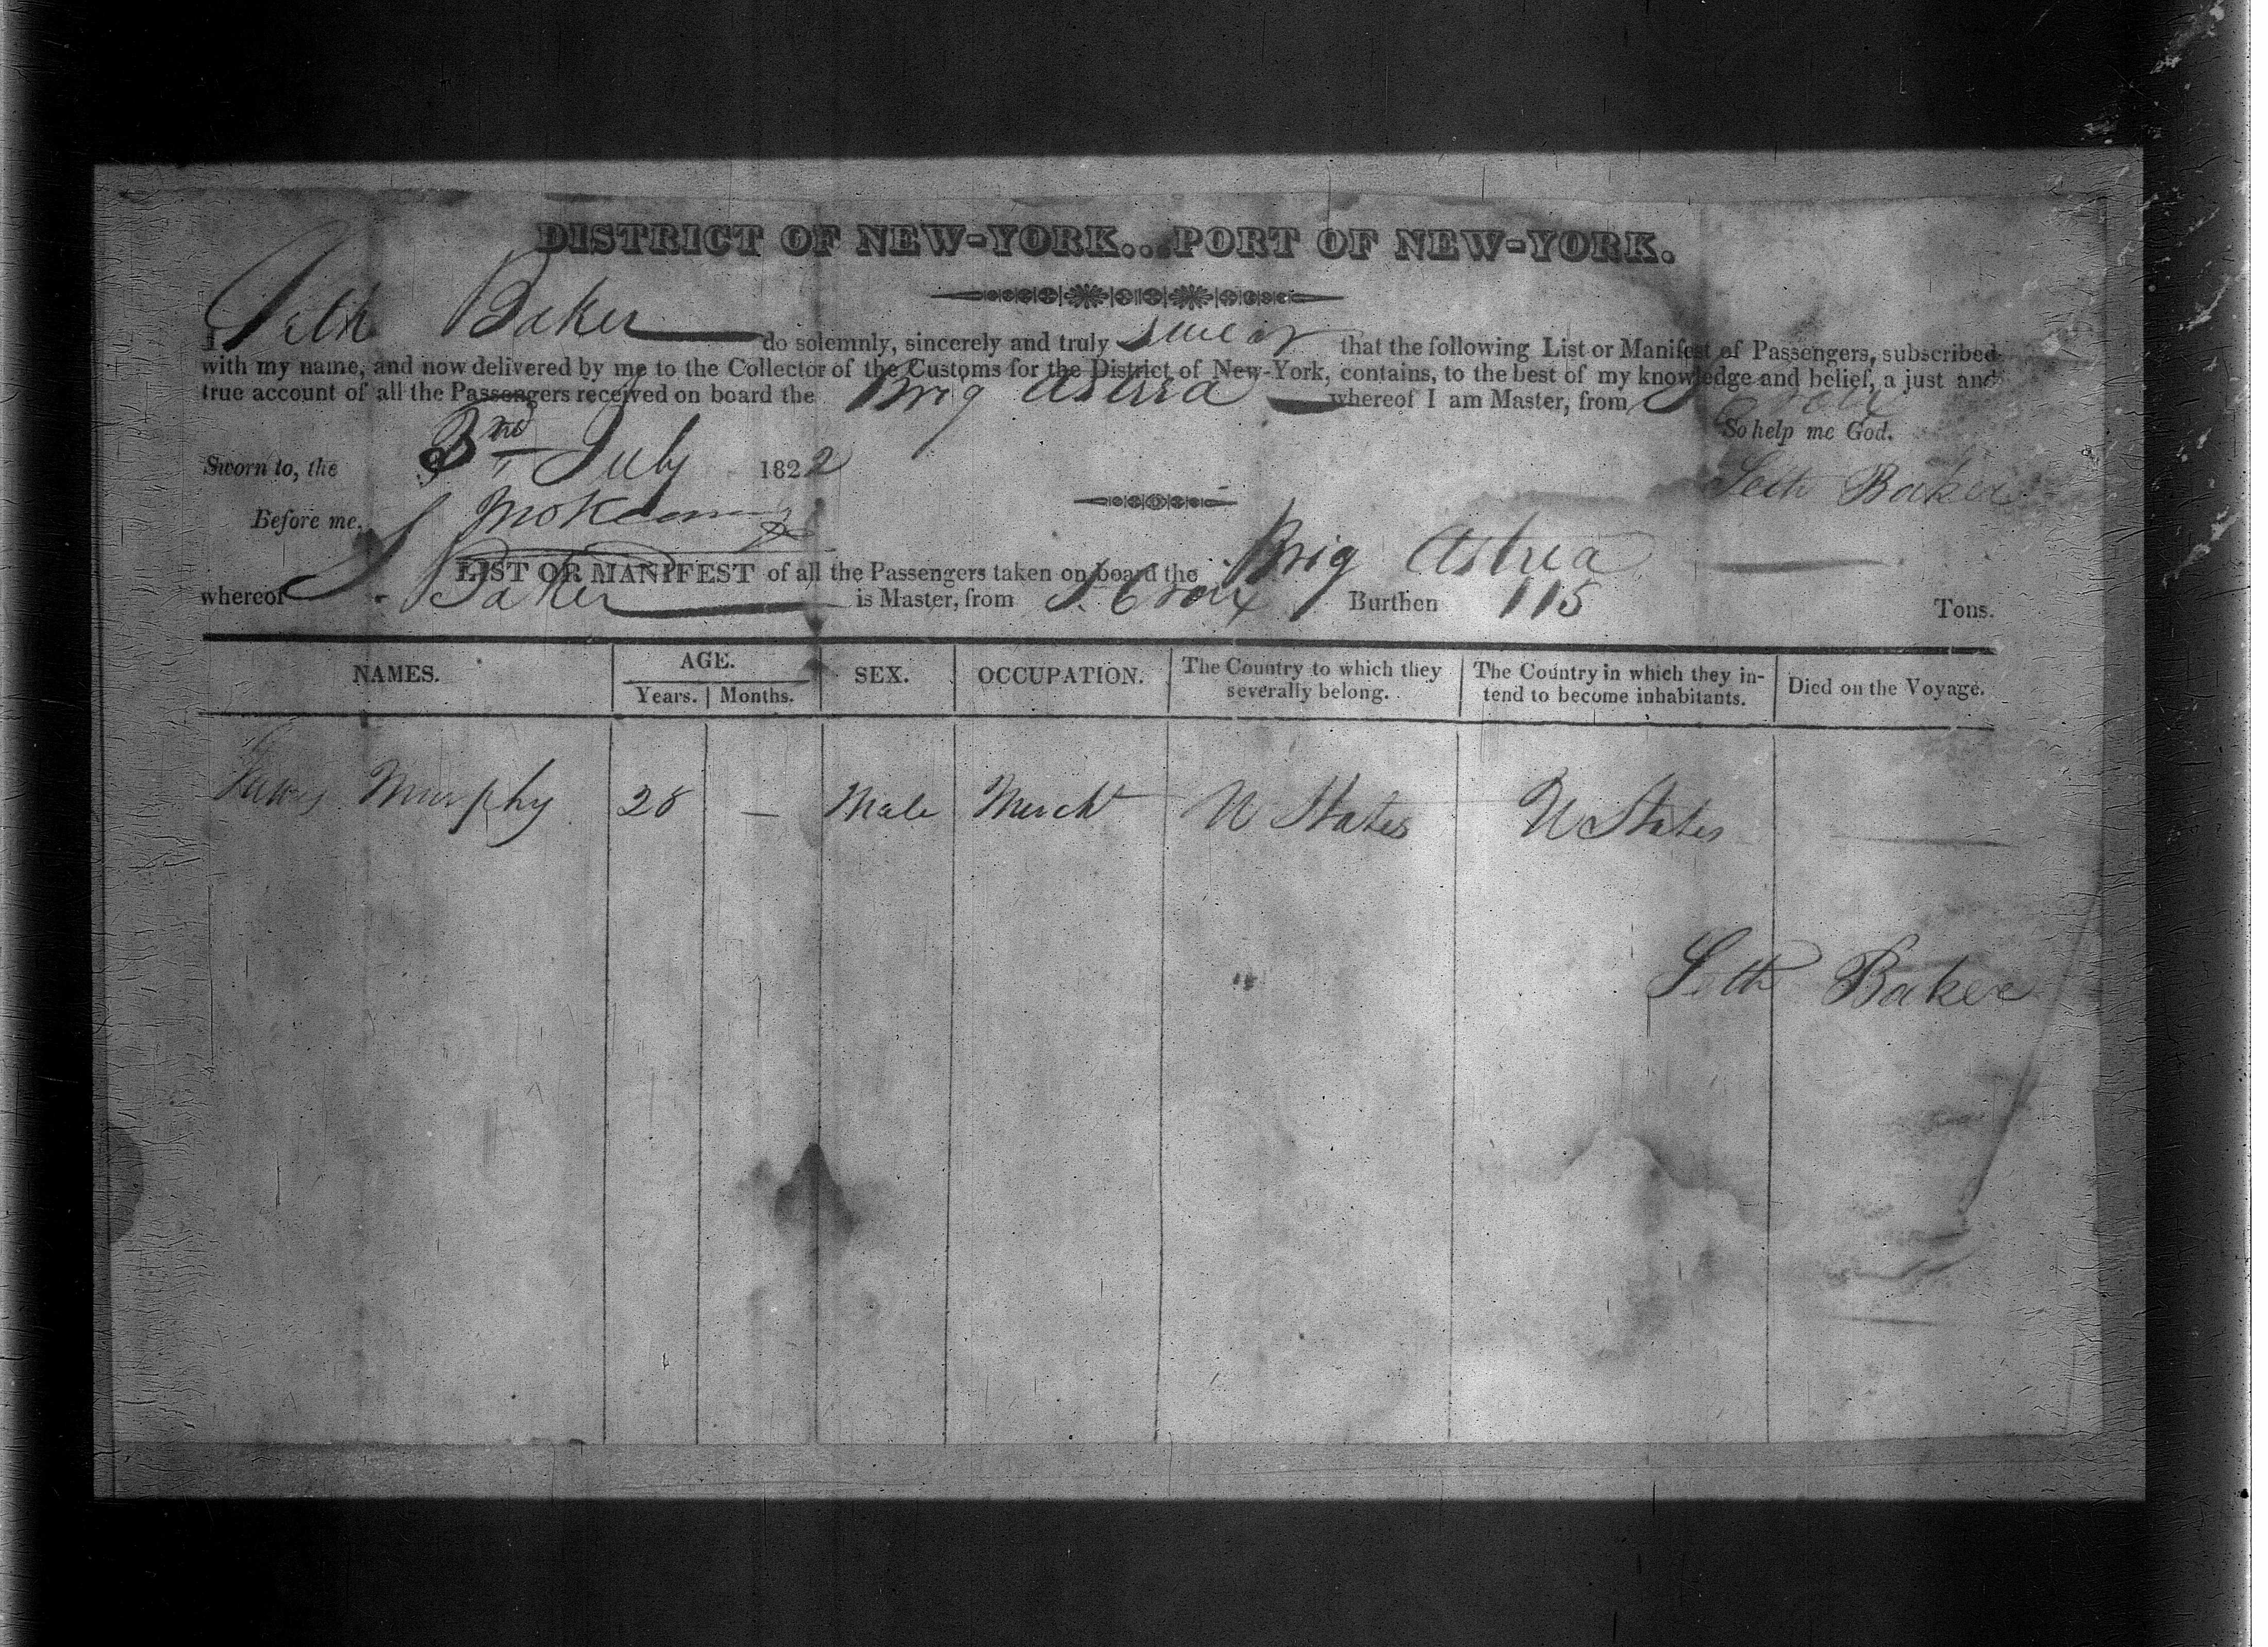 DISTRICT OF NEW-YORK...PORT OF NEW-YORK.
I Seth Baker do solemnly, sincerely and truly swear that the following List or Manifest of Passengers, subscribed
with my name, and now delivered by me to the Collector of the Customs for the District of New-York, contains, to the best of my knowledge and belief, a just and
true account of all the Passengers received on board the Brig Astrea whereof I am Master, from S. Croix
So help me God.
Sworn to, the 3nd July 1822
Seth Baker
Before me,
LIST OR MANIFEST of all the Passengers taken on board the Brig Astrea
whereof S. Baker is Master, from S. Croix Burthen 115 Tons.
NAMES. AGE. SEX. OCCUPATION. The Country to which they severally belong. The Country in which they in-tend to become inhabitants. Died on the Voyage.
Years. Months.
Murphy 28 — Male Mercht U States U States
Seth Baker